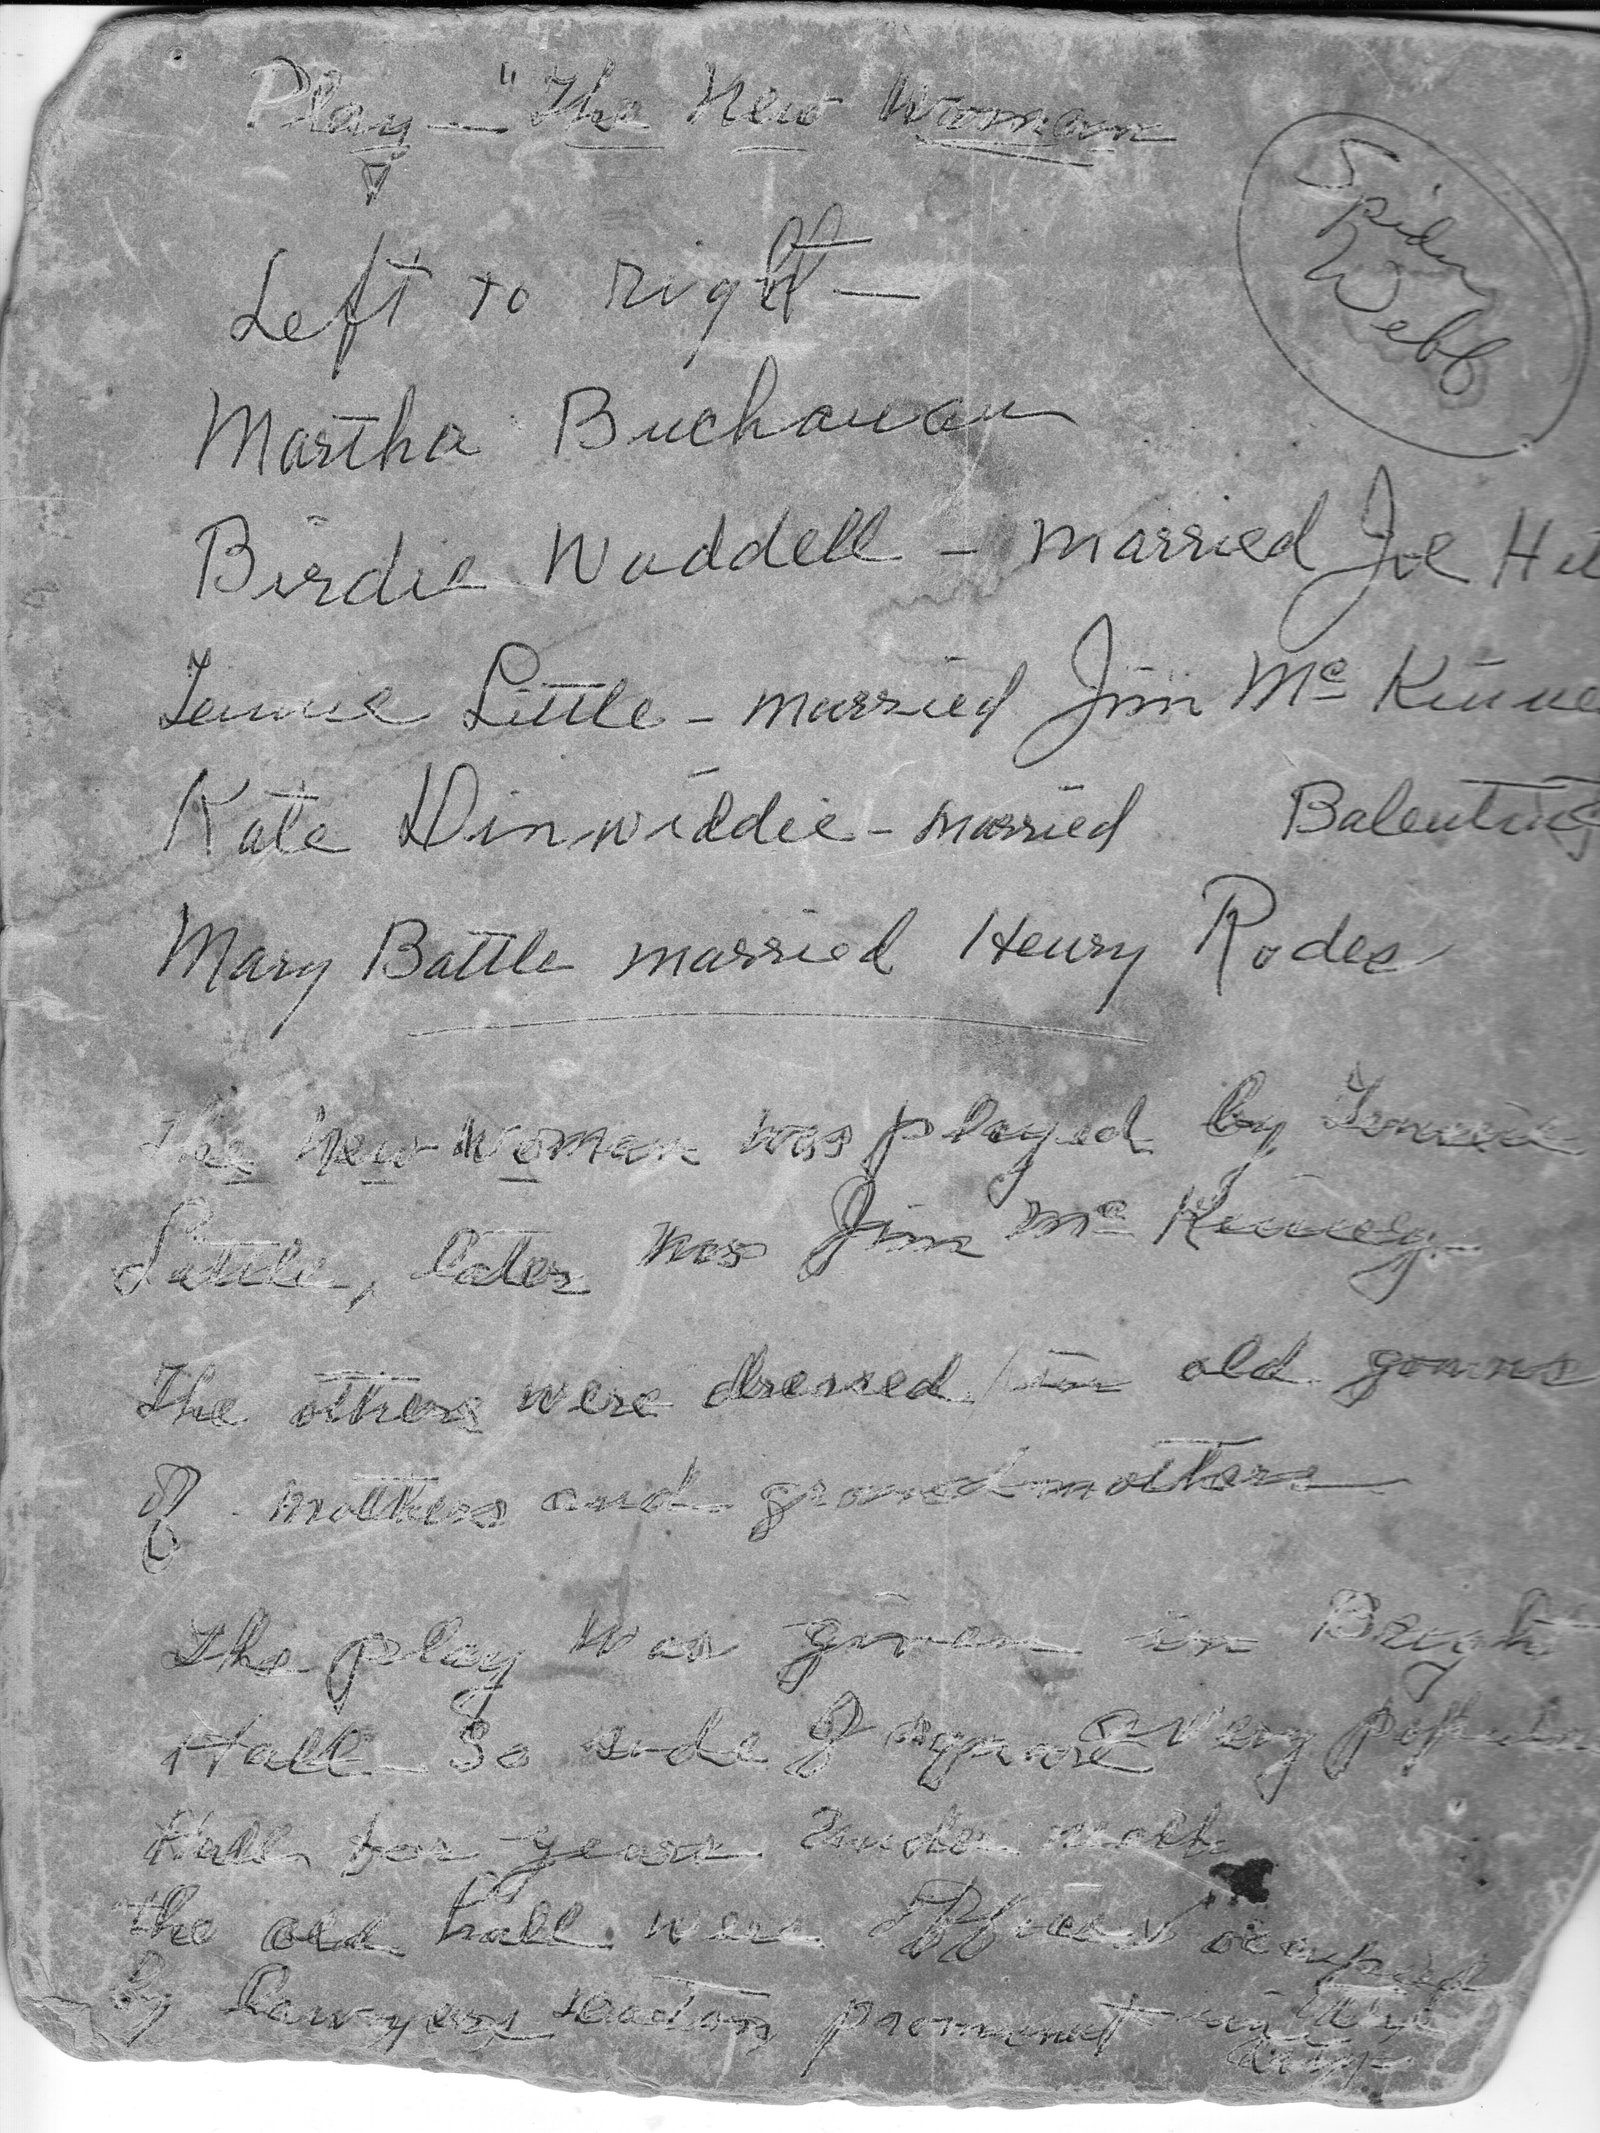 Play — "The New Woman
Spider
Webb
Left to right —
Martha Buchanan
Birdie Waddell – married Joe
Tennie Little – married Jim Mc Kinne
Kate Dinwiddie – married Balentine
Mary Battle married Henry Rodes
The New Woman was played by Tennie
Little, later Mrs Jim Mc Kinney
The others were dressed in old gowns
of mothers and grandmothers
The play was given in Bright
Hall – So side of square a very popular
Hall for years Under neath
the old hall were offices occupied
by lawyers prominent in their